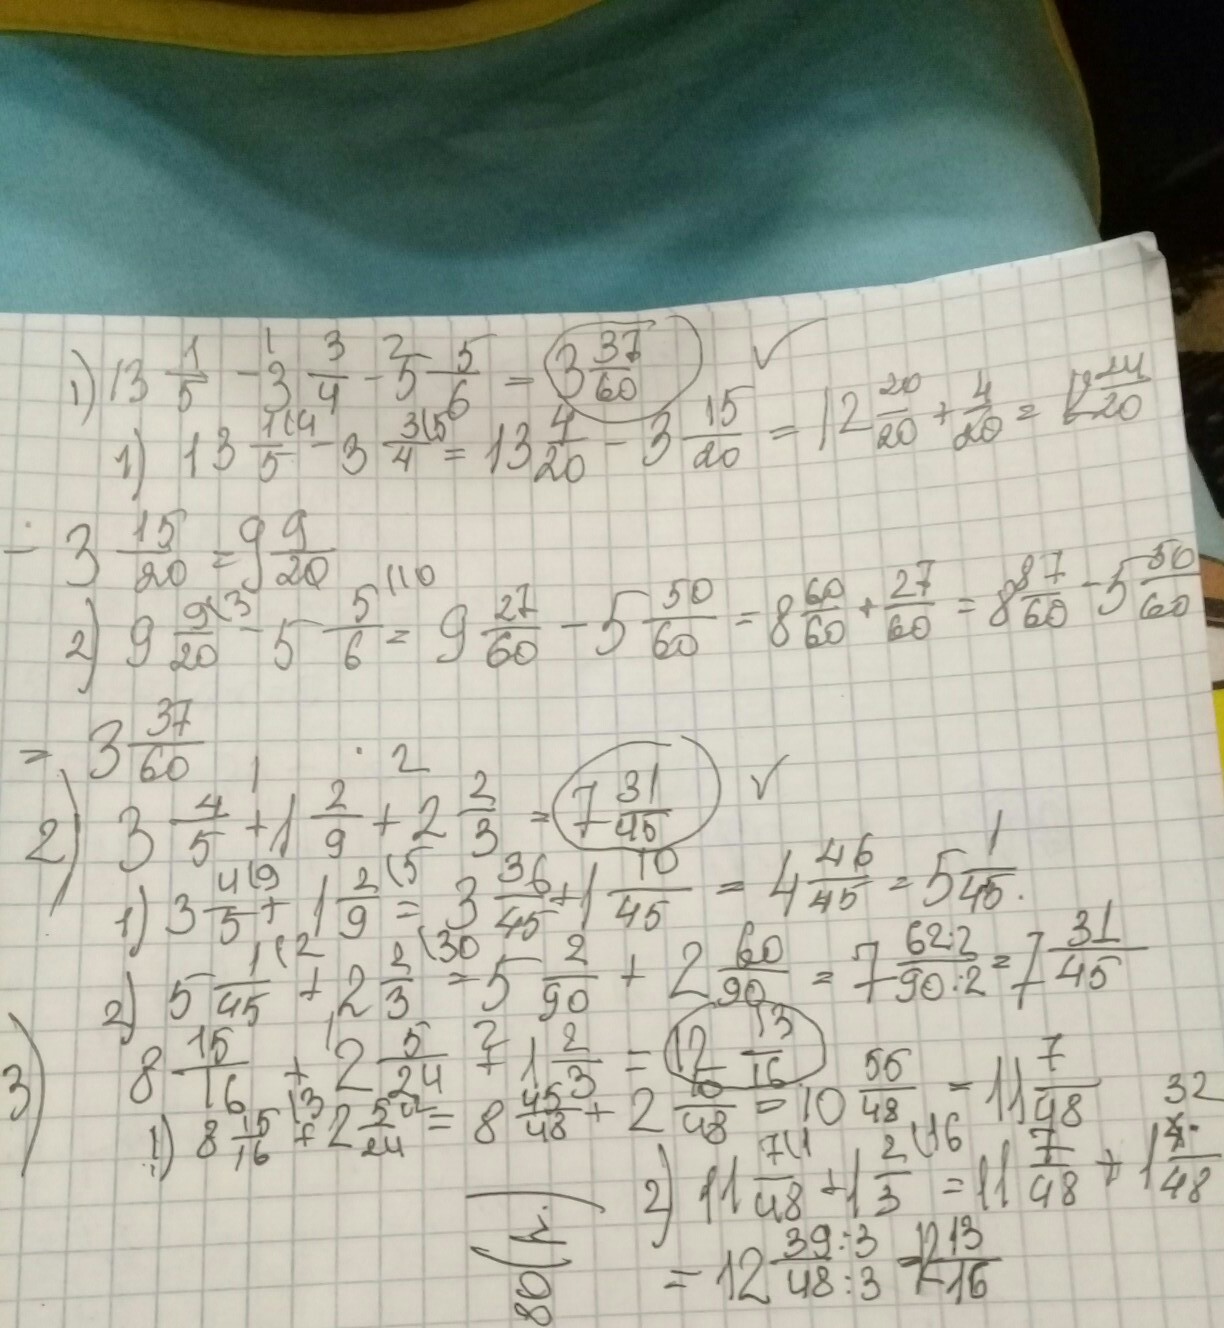 1) 13 1/5 - 3 3/4 - 5 5/6 = 3 37/60 ✓
1) 13 1(4/5 - 3 3(5/4 = 13 4/20 - 3 15/20 = 12 20/20 + 4/20 = 12 24/20
- 3 15/20 = 9 9/20
2) 9 9(3/20 - 5 5(10/6 = 9 27/60 - 5 50/60 = 8 60/60 + 27/60 = 8 87/60 - 5 50/60
= 3 37/60
2) 3 4/5 + 1 2/9 + 2 2/3 = 7 31/45 ✓
1) 3 4(9/5 + 1 2(5/9 = 3 36/45 + 1 10/45 = 4 46/45 = 5 1/45.
2) 5 1(2/45 + 2 2(30/3 = 5 2/90 + 2 60/90 = 7 62:2/90:2 = 7 31/45
3) 8 15/16 + 2 5/24 + 1 2/3 = 12 13/16
1) 8 15(3/16 + 2 5(2/24 = 8 45/48 + 2 10/48 = 10 55/48 = 11 7/48
2) 11 7(1/48 + 1 2(16/3 = 11 7/48 + 1 32/48
= 12 39:3/48:3 = 12 13/16